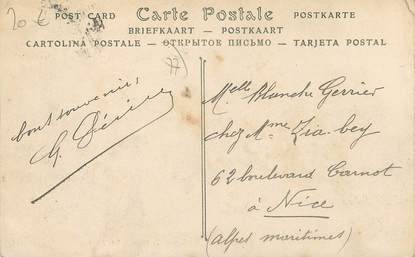 20 €
POST CARD Carte Postale POSTKARTE
BRIEFKAART — POSTKAART
CARTOLINA POSTALE — ОТКРЫТОЕ ПИСЬМО — TARJETA POSTAL
77
bons souvenirs,
G.
Melle Blanche Gerrier
chez Mme Zia-bey
62 boulevard Carnot
à Nice
(alpes maritimes)